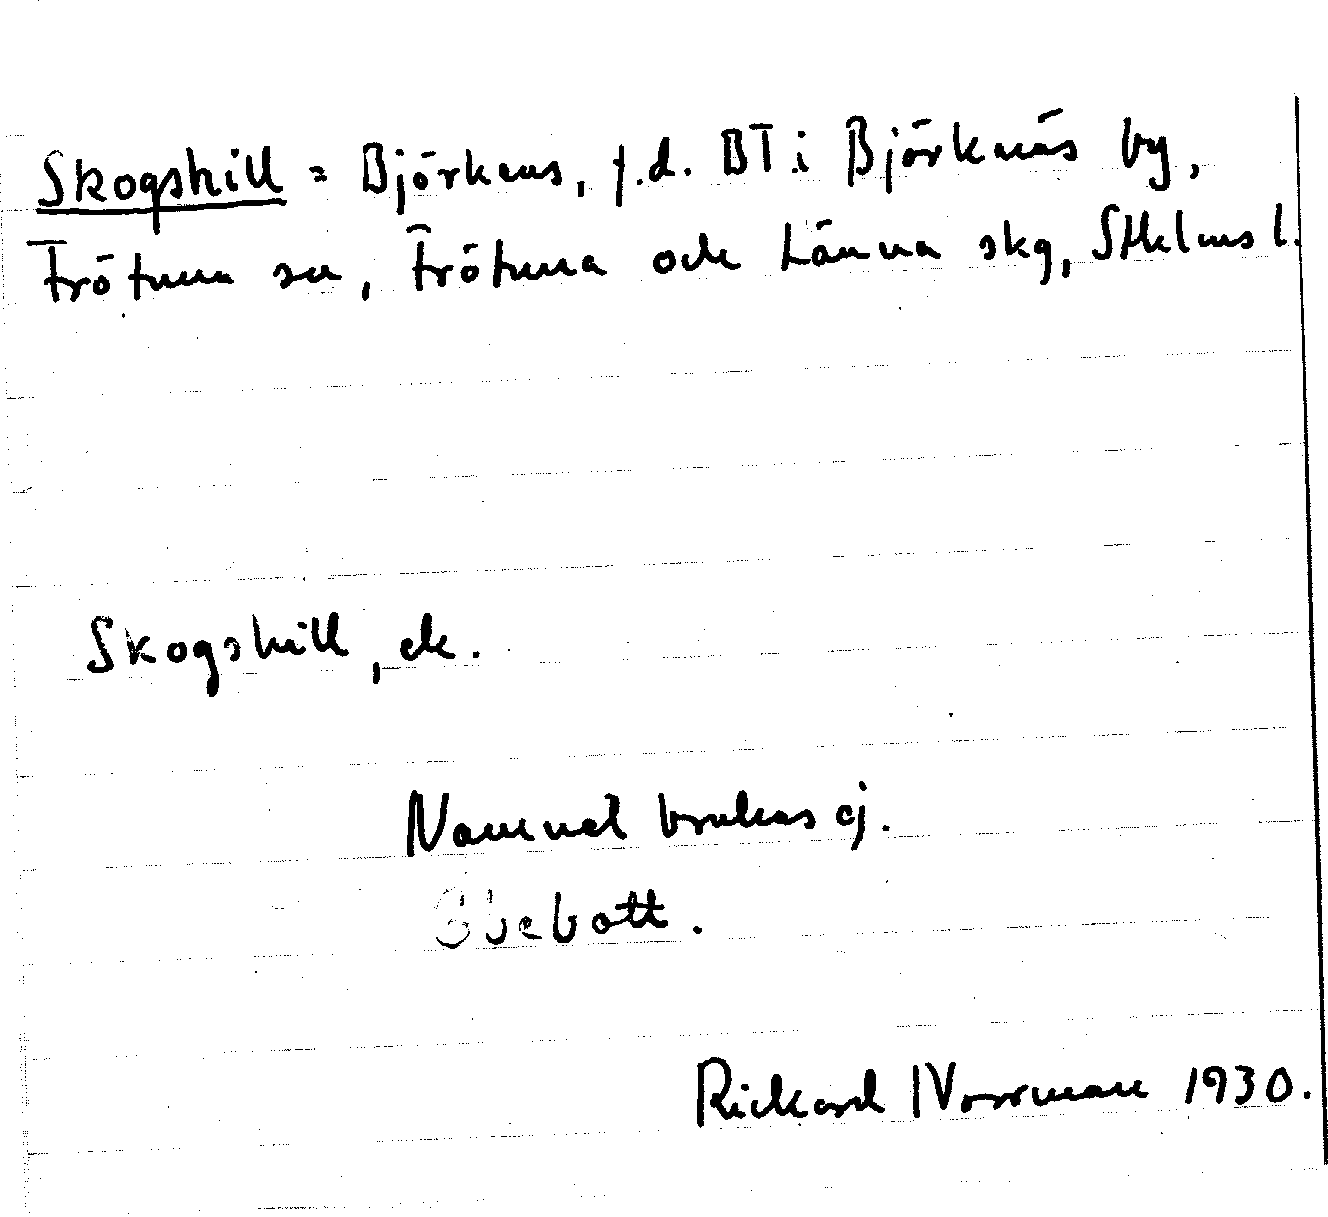 Skogshill = Björknäs, f.d. BT i Björknäs by,
Frötuna sn, Frötuna och Länna skg, Sthlms l.
Skogshill, ek.
Namnet brukas ej.
Obebott.
Rickard Norrman 1930.